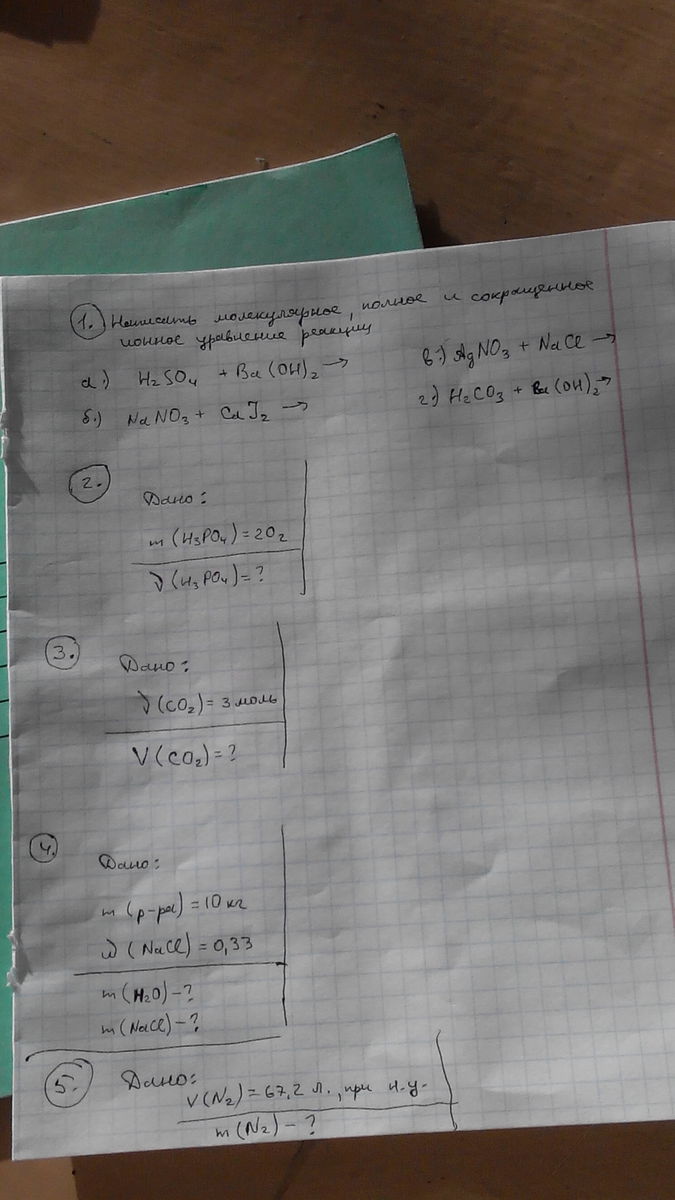 1. Написать молекулярное, полное и сокращенное
ионное уравнение реакции
а.) H₂SO₄ + Ba(OH)₂ →
в.) AgNO₃ + NaCl →
б.) NaNO₃ + CaI₂ →
г.) H₂CO₃ + Ba(OH)₂ →
2.
Дано:
m(H₃PO₄) = 20 г
ν(H₃PO₄) = ?
3.
Дано:
ν(CO₂) = 3 моль
V(CO₂) = ?
4.
Дано:
m(р-ра) = 10 кг
ω(NaCl) = 0,33
m(H₂O) - ?
m(NaCl) - ?
5. Дано:
V(N₂) = 67,2 л., при н.у.
m(N₂) - ?